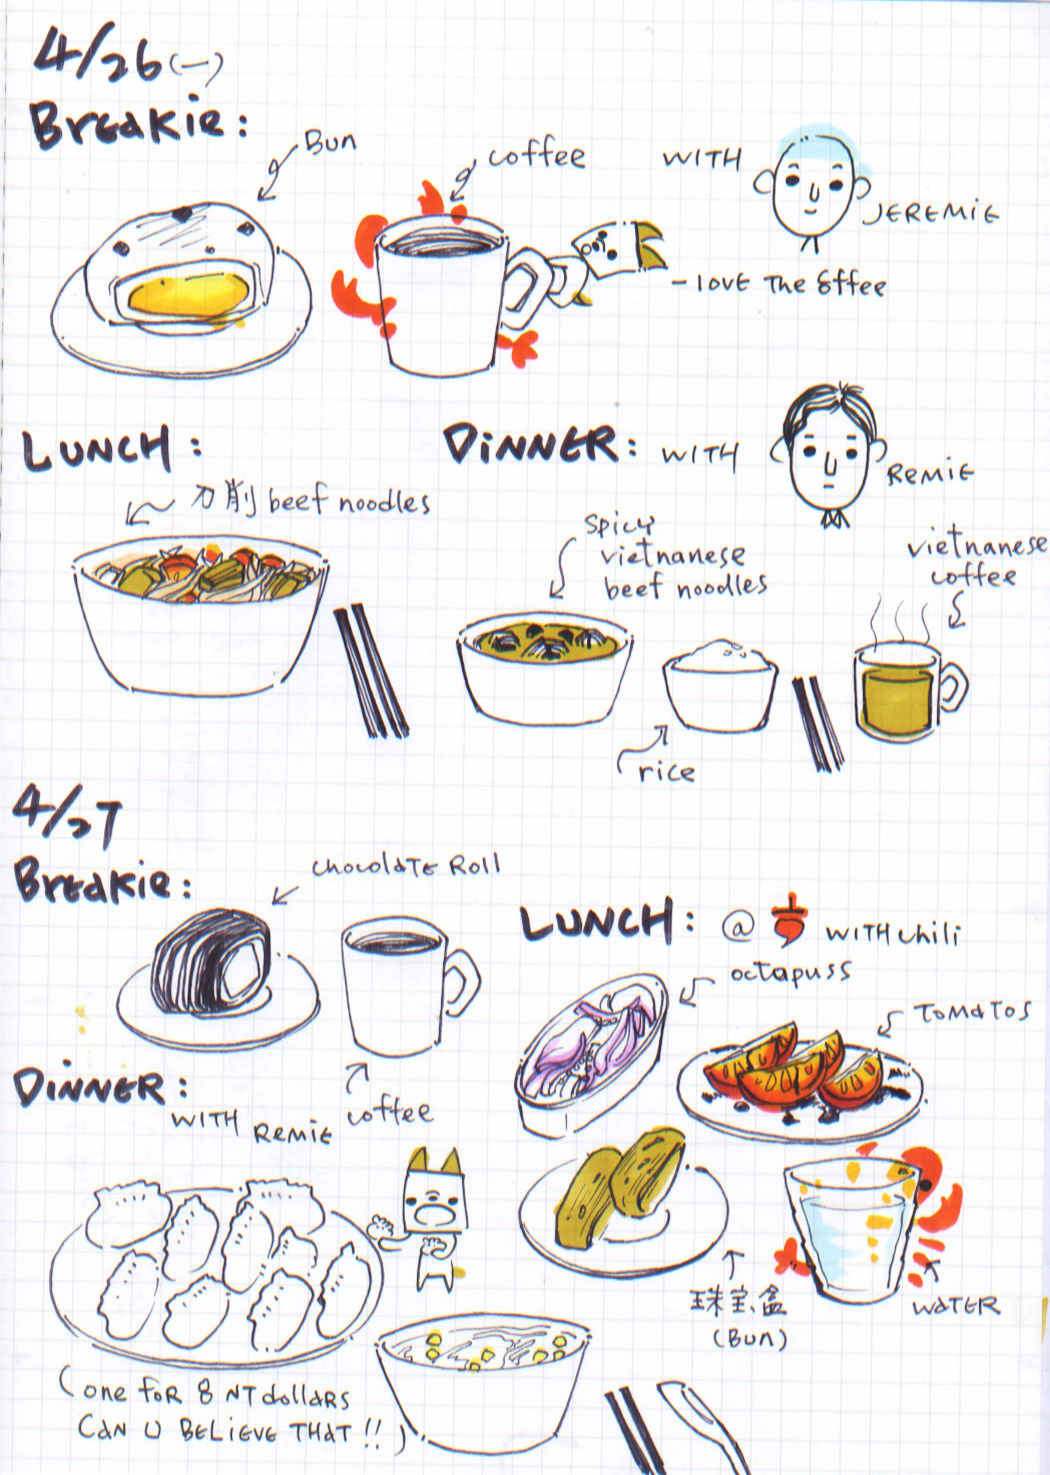 4/26 (一)
Breakie:
Bun
coffee
WITH
JEREMIE
- love The 8ffee
LUNCH:
刀削 beef noodles
DINNER: WITH
REMIE
spicy
vietnanese
beef noodles
vietnanese
coffee
rice
4/27
Breakie:
chocolate Roll
coffee
LUNCH: @ WITH chili
octapuss
TOMATOS
珠宝盒
(BUN)
WATER
DINNER:
WITH REMIE
(one for 8 NT dollars
CAN U BELIEVE THAT!!)